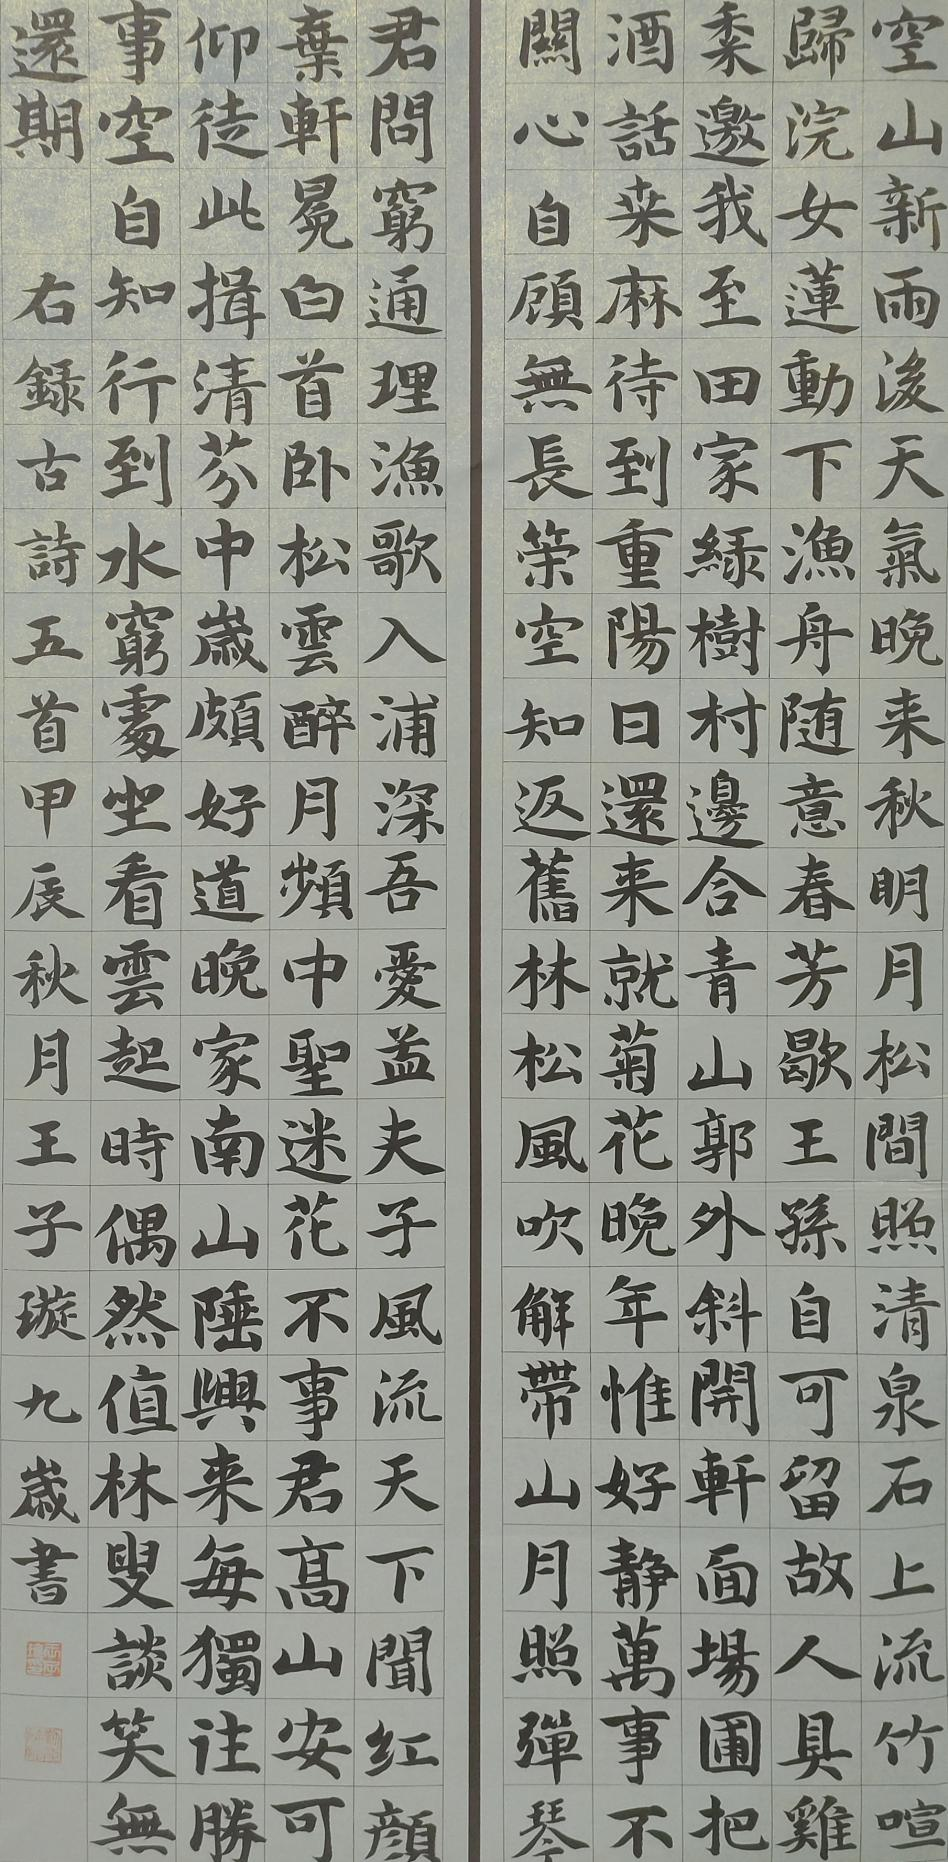 空山新雨後天氣晚来秋明月松間照清泉石上流竹喧
歸浣女蓮動下漁舟随意春芳歇王孫自可留故人具雞
黍邀我至田家綠樹村邊合青山郭外斜開軒面場圃把
酒話桒麻待到重陽日還来就菊花晚年惟好静萬事不
關心自顧無長策空知返舊林松風吹解帶山月照彈琴
君問窮通理漁歌入浦深吾愛孟夫子風流天下聞红顔
棄軒冕白首卧松雲醉月頻中聖迷花不事君高山安可
仰徒此揖清芬中歲頗好道晚家南山陲興来每獨往勝
事空自知行到水窮處坐看雲起時偶然值林叟談笑無
還期
右録古詩五首甲辰秋月王子璇九歲書